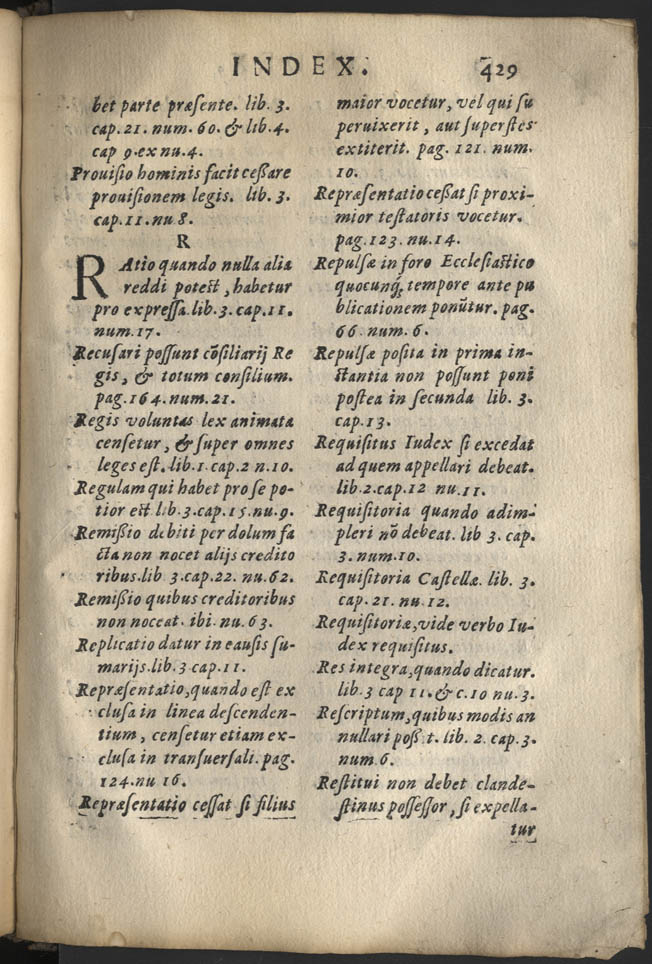 INDEX. 429
bet parte præſente. lib. 3.
cap. 21. num. 60. & lib. 4.
cap 9. ex nu. 4.
Prouiſio hominis facit ceßare
prouiſionem legis. lib. 3.
cap. 11. nu 8.
R
RAtio quando nulla alia
reddi poteſt, habetur
pro expreſſa. lib. 3. cap. 11.
num. 17.
Recuſari poſſunt cõſiliarij Re
gis, & totum conſilium.
pag. 164. num. 21.
Regis voluntas lex animata
cenſetur, & ſuper omnes
leges eſt. lib. 1. cap. 2 n. 10.
Regulam qui habet pro ſe po-
tior eſt lib. 3. cap. 15. nu. 9.
Remißio debiti per dolum fa
cta non nocet alijs credito
ribus. lib 3. cap. 22. nu. 62.
Remißio quibus creditoribus
non noceat. ibi. nu. 63.
Replicatio datur in cauſis ſu-
marijs. lib. 3 cap. 11.
Repræſentatio, quando eſt ex
cluſa in linea deſcenden-
tium, cenſetur etiam ex-
cluſa in tranſuerſali. pag.
124. nu 16.
Repræſentatio ceſſat ſi filius
maior vocetur, vel qui ſu
peruixerit, aut ſuperſtes
extiterit. pag. 121. num.
10.
Repræſentatio ceßat ſi proxi-
mior teſtatoris vocetur.
pag. 123. nu. 14.
Repulſæ in foro Eccleſiaſtico
quocunq; tempore ante pu
blicationem ponũtur. pag.
66. num. 6.
Repulſæ poſita in prima in-
ſtantia non poſſunt poni
poſtea in ſecunda lib. 3.
cap. 13.
Requiſitus Iudex ſi excedat
ad quem appellari debeat.
lib. 2. cap. 12 nu. 11.
Requiſitoria quando adim-
pleri nõ debeat. lib 3. cap.
3. num. 10.
Requiſitoria Caſtellæ. lib. 3.
cap. 21. nu. 12.
Requiſitoriæ, vide verbo Iu-
dex requiſitus.
Res integra, quando dicatur.
lib. 3 cap 11. & c. 10 nu. 3.
Reſcriptum, quibus modis an
nullari poß.t. lib. 2. cap. 3.
num. 6.
Reſtitui non debet clande-
ſtinus poſſeſſor, ſi expella-
tur